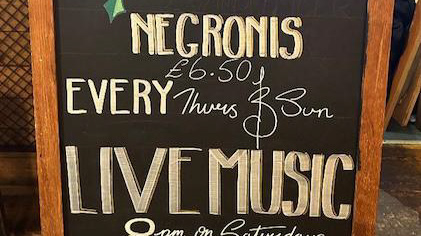 NEGRONIS
£6.50
EVERY Thurs & Sun
LIVE MUSIC
8pm on Saturdays